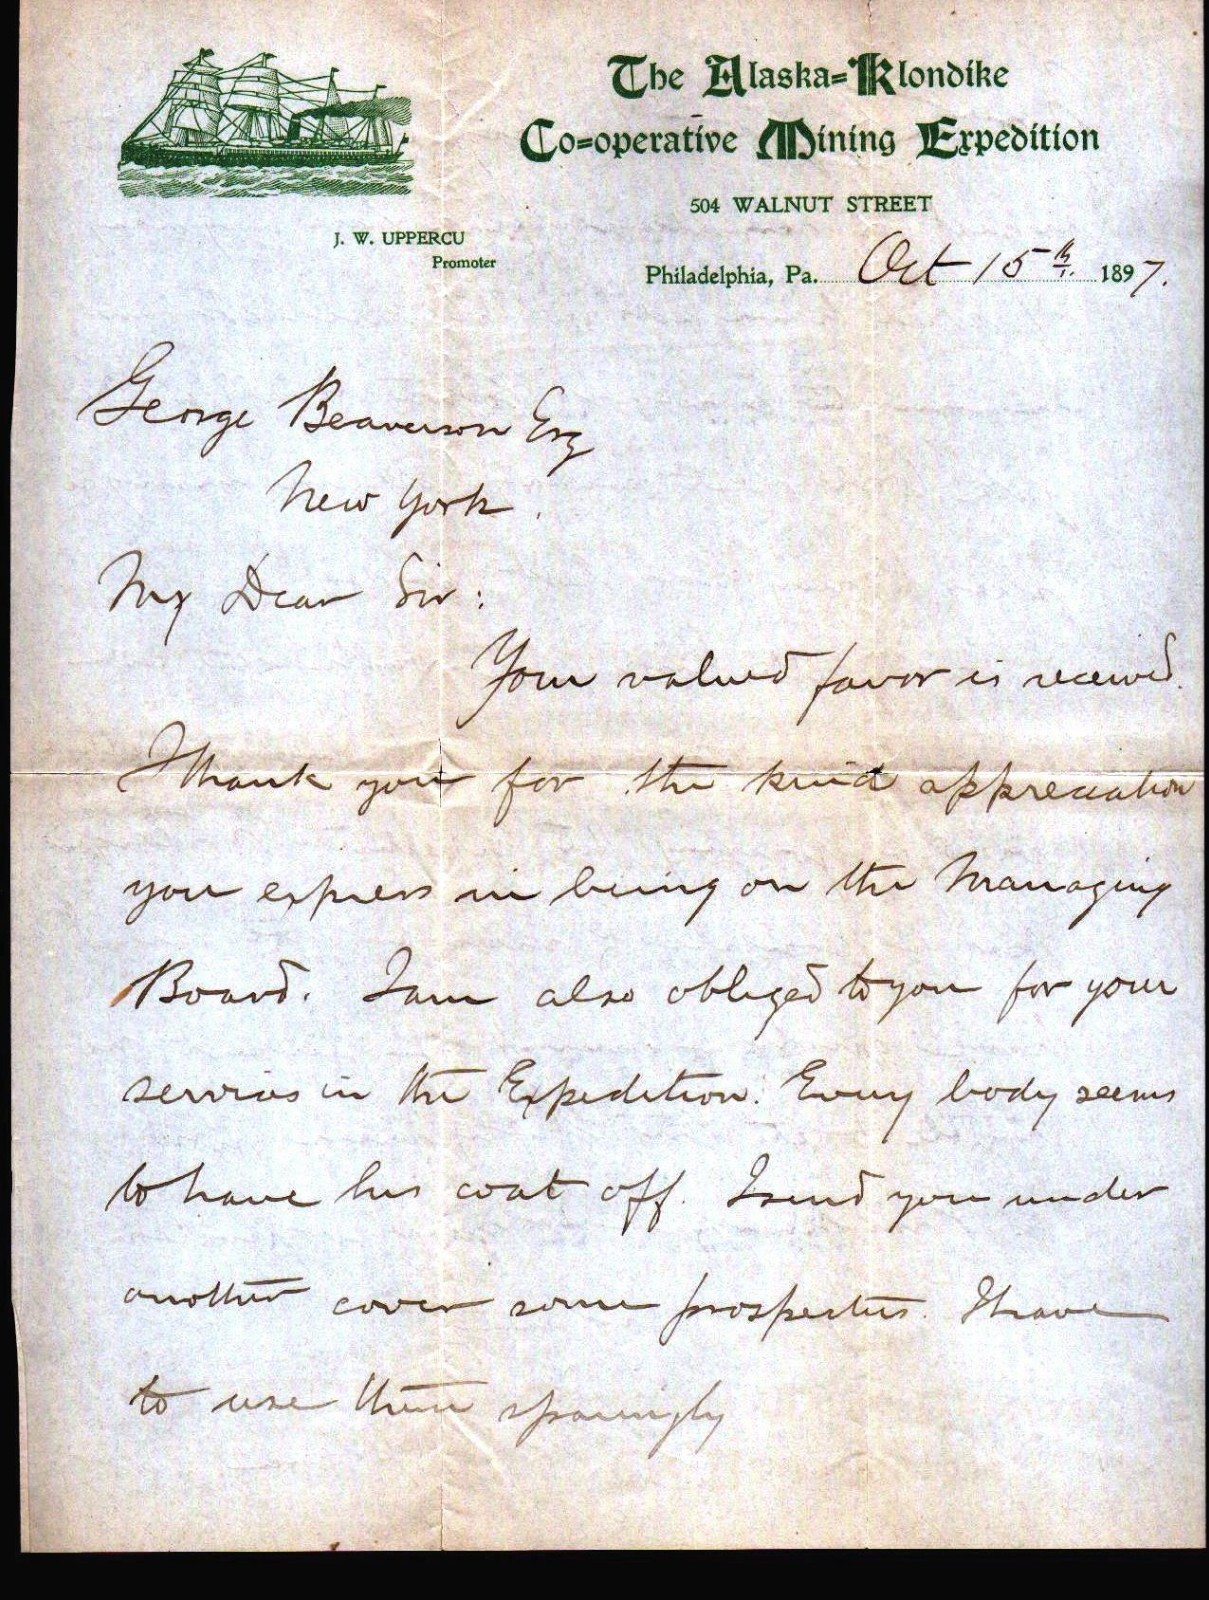 The Alaska-Klondike
Co-operative Mining Expedition
504 WALNUT STREET
J. W. UPPERCU
Promoter
Philadelphia, Pa. Oct 15th 1897.
George Beaverson Esq
New York.
My Dear Sir:
Your valued favor is received.
I thank you for the kind appreciation
you express in being on the Managing
Board. I am also obliged to you for your
services in the Expedition. Every body seems
to have his coat off. I send you under
another cover some prospectus. I have
to use them sparingly